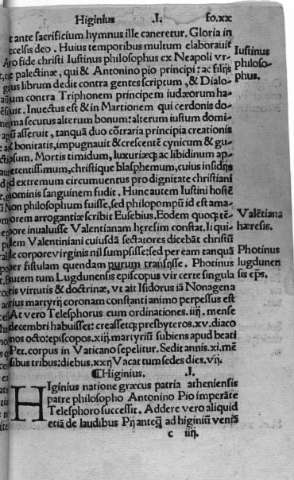 Higinius .I. fo.xx
ut ante sacrificium hymnus ille caneretur. Gloria in
excelsis deo. Huius temporibus multum elaborauit
pro fide christi Iustinus philosophus ex Neapoli vr
be palestinæ, qui & Antonino pio principi: ac filijs
eius librum dedit contra gentes scriptum, & Dialo
gum contra Triphonem principem iudæorum ha
buit. Inuectus est & in Martionem qui cerdonis do
gma secutus alterum bonum: alterum iustum domi
num asseruit, tanquā duo cōtraria principia creationis
ac bonitatis, impugnauit & crescentē cynicum & gu
Mortis timidum, luxuriæq; ac libidinum ap
petentissimum, christique blasphemum, cuius insidijs
ad extremum circumuentus pro dignitate christiani
nominis sanguinem fudit. Hunc autem Iustini hostē
Non philosophum fuisse, sed philopompū id est ama
torem arrogantiæ scribit Eusebius, Eodem quoq; tē
pore inualuisse Valentianam hæresim constat, Ii qui
dem Valentiniani cuiusdā sectatores dicebāt christū
nil de corpore virginis nil sumpsisse: sed per eam tanquā
per fistulam quendam purum transisse. Photinus
autem tum Lugdunensis episcopus vir certe singula
ris virtutis & doctrinæ, vt ait Isidorus iā Nonagena
rius martyrij coronam constanti animo perpessus est
At vero Telesphorus cum ordinationes .iiij. mense
decembri habuisset: creassetq; presbyteros.xv. diaco
nos octo: episcopos.xiij. martyriū subiens apud beati
Petri corpus in Vaticano sepelitur. Sedit annis.xi.mē
sibus tribus: diebus.xxij Vacat tum sedes dies.vij.
¶Higinius. .I.
HIginius natione græcus patria atheniensis
patre philosopho Antonino Pio imperāte
Telesphoro successit. Addere vero aliquid
etiā de laudibus Pij anteq̄ ad higiniū veniā
c iiij
Iustinus
philoso-
phus.
Valētiana
hæresis.
Photinus
lugdunen
sis eps.